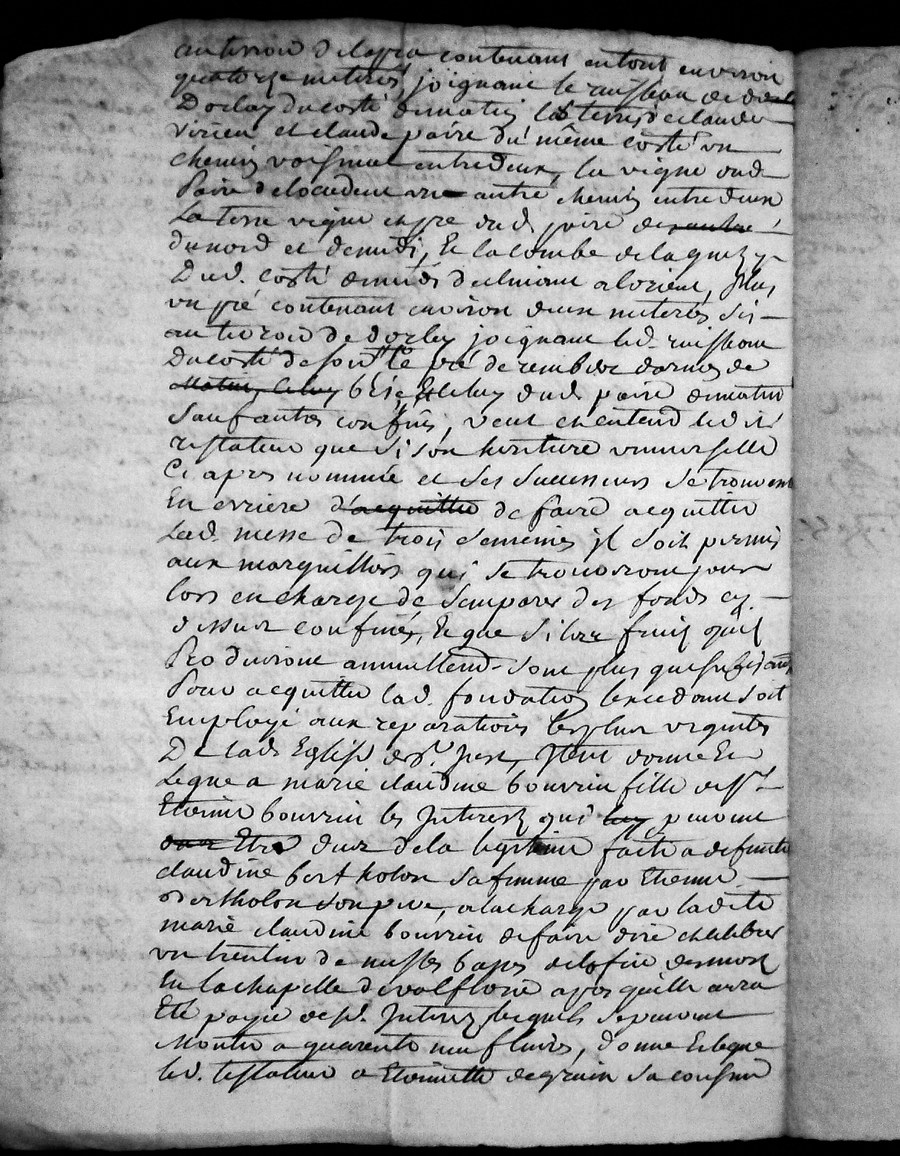 contenant en tout environ
quatorze meterés, joignant le ruisseau de
Dorlay du costé dematin la terre de claude
virieu et claude poire du même costé un
chemin voisinal entredeux, la vigne dud.
Poire de loccident une autre chemin entredeux
La terre vigne et pre dud. poire de
du nord et demidi, Et la combe de
Dud. costé demidi declinant a lorient, plus
un pré contenant environ deux meterés sis
au terroir de dorley joignant led. ruisseau
Du costé de soir le pré de
Et celuy dud. poire dematin
Sauf autres confins, veut et entend ledit
testateur que si son heritiere universelle
Ci apres nommée et ses successeurs se trouvent
En arriere d'acquitter de faire acquitter
Lad. messe de trois semaines il soit permis
aux marguilliers qui se trouveront pour
lors en charge de semparer des fonds cy
dessus confinés, Et que si les fruits quils
Produiront annuellement sont plus que suffisants
Pour acquitter lad. fondation lexcedant soit
Employé aux reparations les plus urgentes
De lad. Eglise de St. just, plus donne Et
Legue a marie claudine bouvrin fille de Sr.
Etienne bouvrin les Interests qui luy peuvent
Etre deus dela legitime faite a defunte
claudine bertholon sa femme par Etienne
bertholon son pere, a la charge par ladite
marie claudine bouvrin de faire dire et celebrer
un trentin de messes basses de lofice des morts
En la chapelle de valfleurie apres quelle aura
Eté payée desd. Interests lesquels se peuvent
Monter a quarante neuf livres, donne Et legue
led. testateur a Etiennette degrain sa cousine